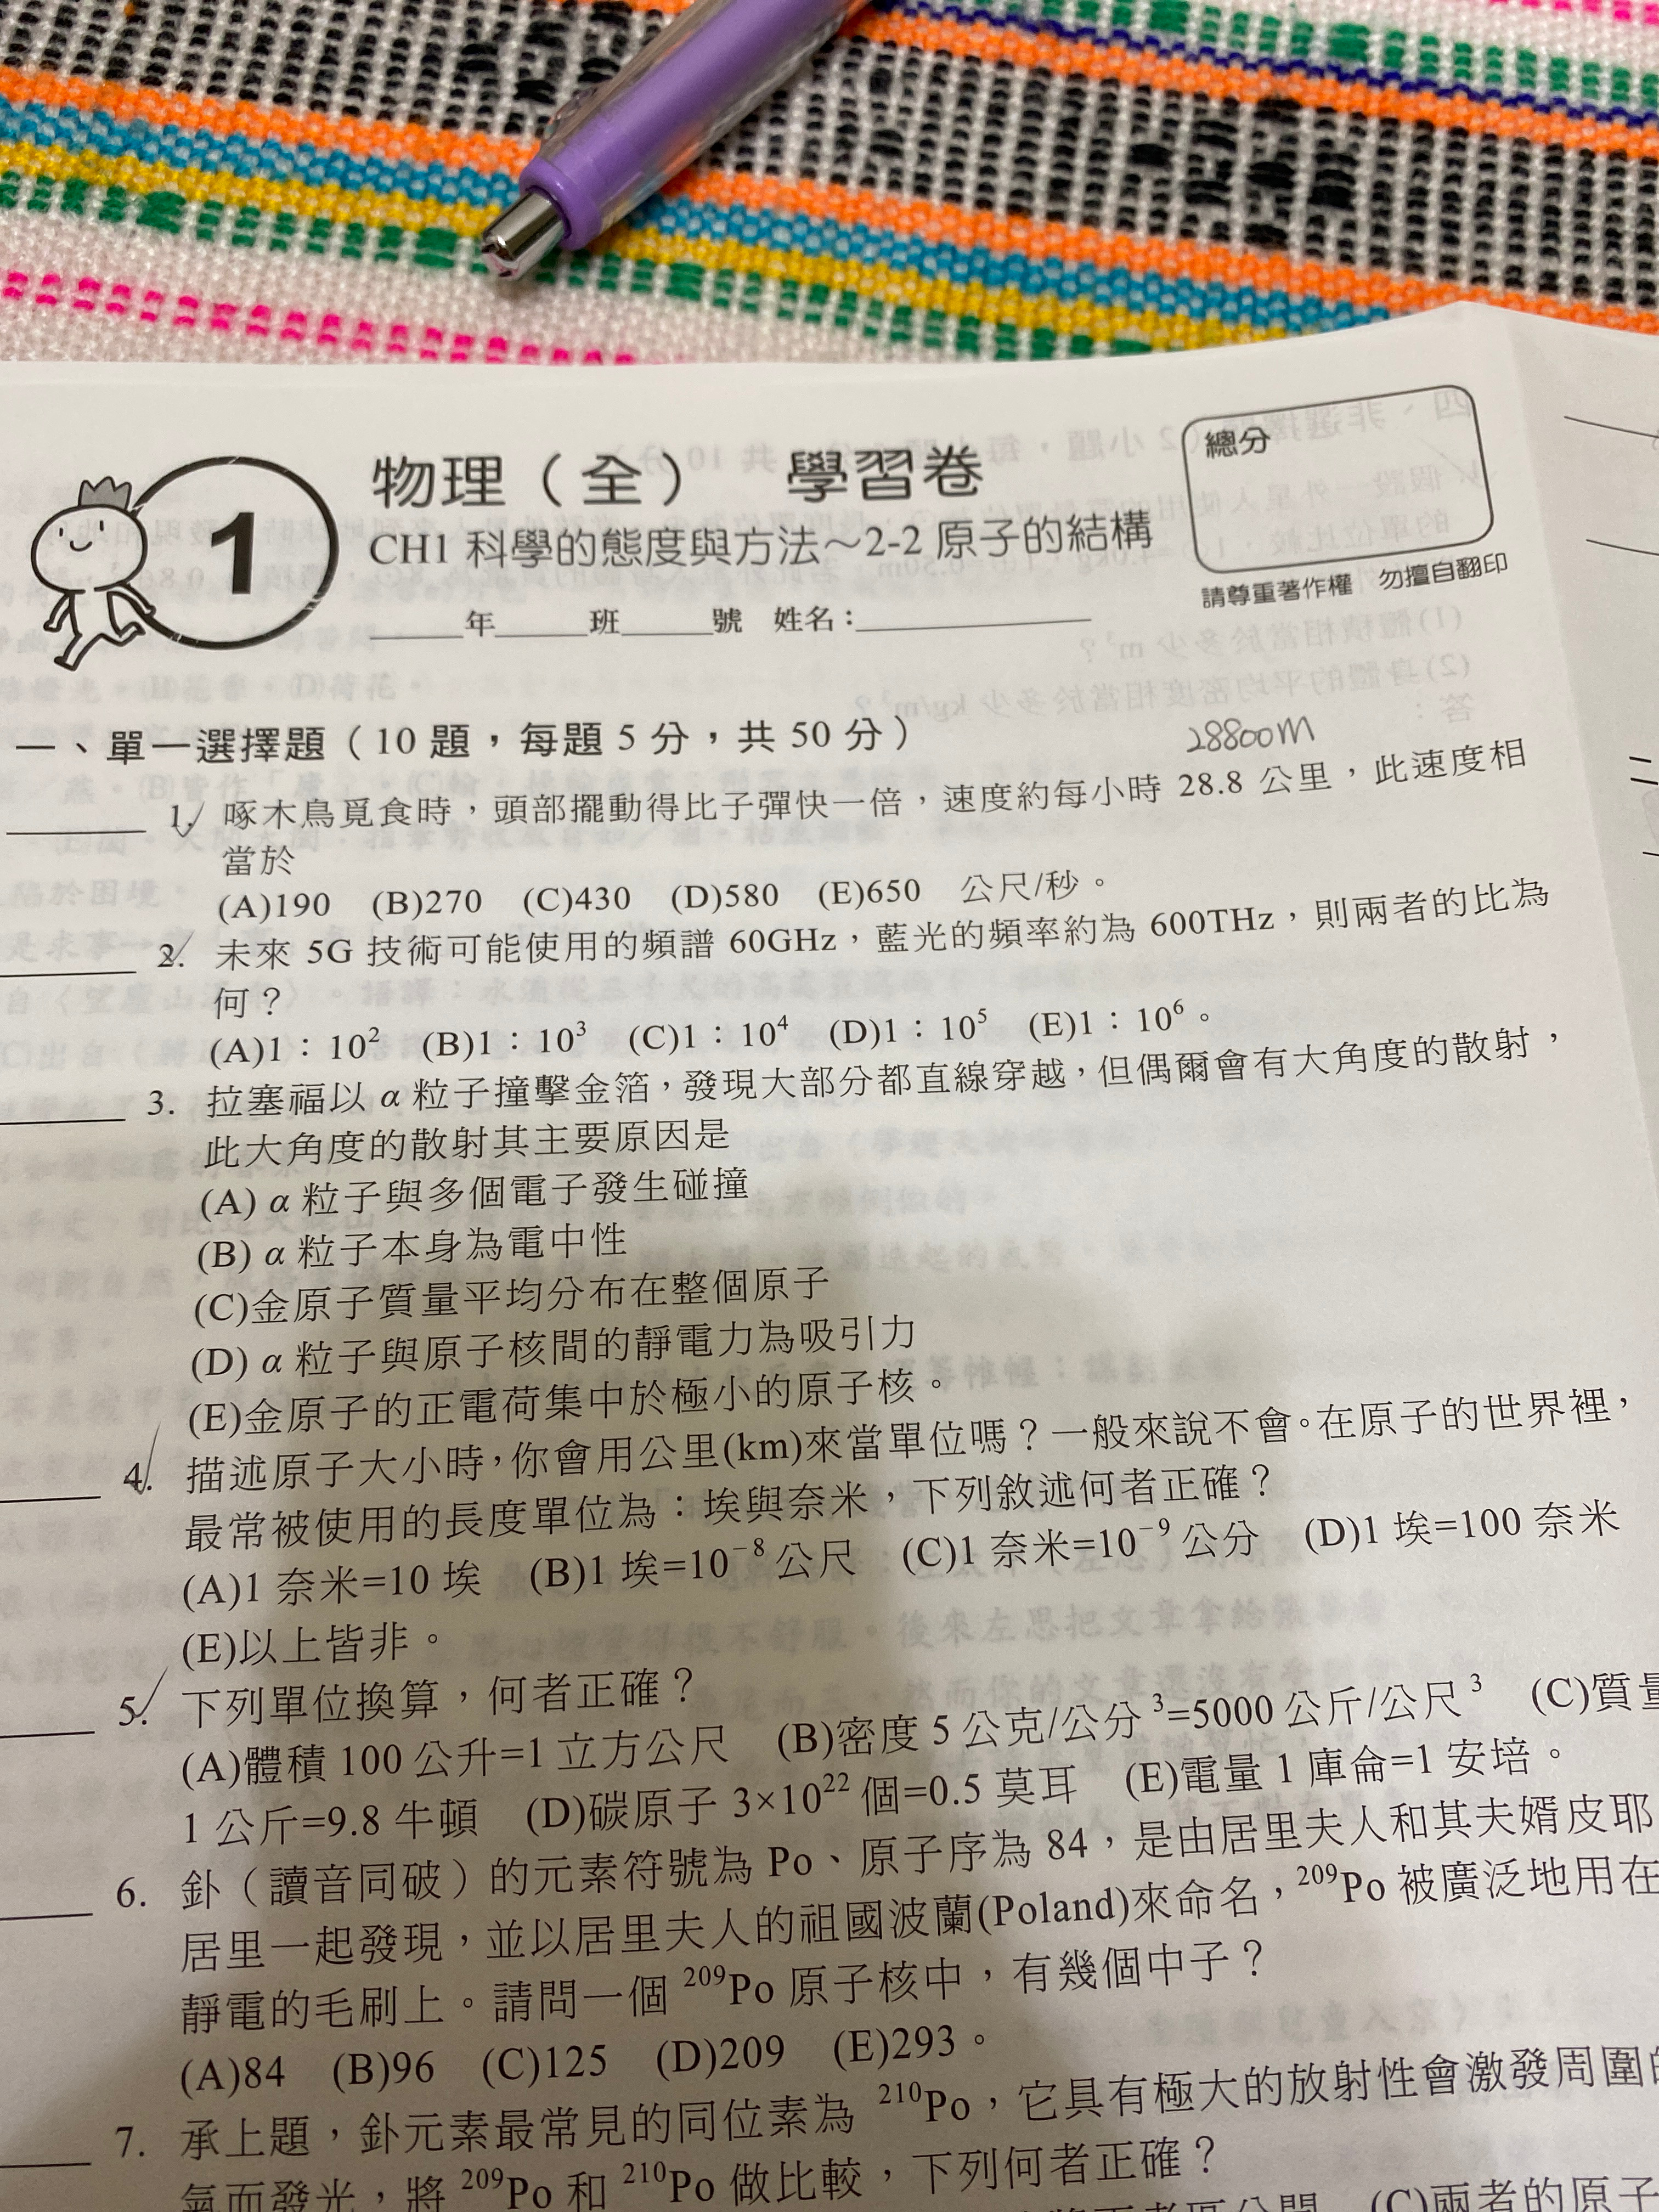 1
物理（全）　學習卷
CH1 科學的態度與方法～2-2 原子的結構
年　班　號　姓名：
總分
請尊重著作權　勿擅自翻印
一、單一選擇題（10 題，每題 5 分，共 50 分）
28800m
1. 啄木鳥覓食時，頭部擺動得比子彈快一倍，速度約每小時 28.8 公里，此速度相
當於
(A)190　(B)270　(C)430　(D)580　(E)650　公尺/秒。
2. 未來 5G 技術可能使用的頻譜 60GHz，藍光的頻率約為 600THz，則兩者的比為
何？
(A)1：10²　(B)1：10³　(C)1：10⁴　(D)1：10⁵　(E)1：10⁶。
3. 拉塞福以 α 粒子撞擊金箔，發現大部分都直線穿越，但偶爾會有大角度的散射，
此大角度的散射其主要原因是
(A) α 粒子與多個電子發生碰撞
(B) α 粒子本身為電中性
(C)金原子質量平均分布在整個原子
(D) α 粒子與原子核間的靜電力為吸引力
(E)金原子的正電荷集中於極小的原子核。
4. 描述原子大小時，你會用公里(km)來當單位嗎？一般來說不會。在原子的世界裡，
最常被使用的長度單位為：埃與奈米，下列敘述何者正確？
(A)1 奈米=10 埃　(B)1 埃=10⁻⁸ 公尺　(C)1 奈米=10⁻⁹ 公分　(D)1 埃=100 奈米
(E)以上皆非。
5. 下列單位換算，何者正確？
(A)體積 100 公升=1 立方公尺　(B)密度 5 公克/公分³=5000 公斤/公尺³　(C)質量
1 公斤=9.8 牛頓　(D)碳原子 3×10²² 個=0.5 莫耳　(E)電量 1 庫侖=1 安培。
6. 釙（讀音同破）的元素符號為 Po、原子序為 84，是由居里夫人和其夫婿皮耶
居里一起發現，並以居里夫人的祖國波蘭(Poland)來命名，²⁰⁹Po 被廣泛地用在
靜電的毛刷上。請問一個 ²⁰⁹Po 原子核中，有幾個中子？
(A)84　(B)96　(C)125　(D)209　(E)293。
7. 承上題，釙元素最常見的同位素為 ²¹⁰Po，它具有極大的放射性會激發周圍的
氣而發光，將 ²⁰⁹Po 和 ²¹⁰Po 做比較，下列何者正確？
(C)兩者的原子